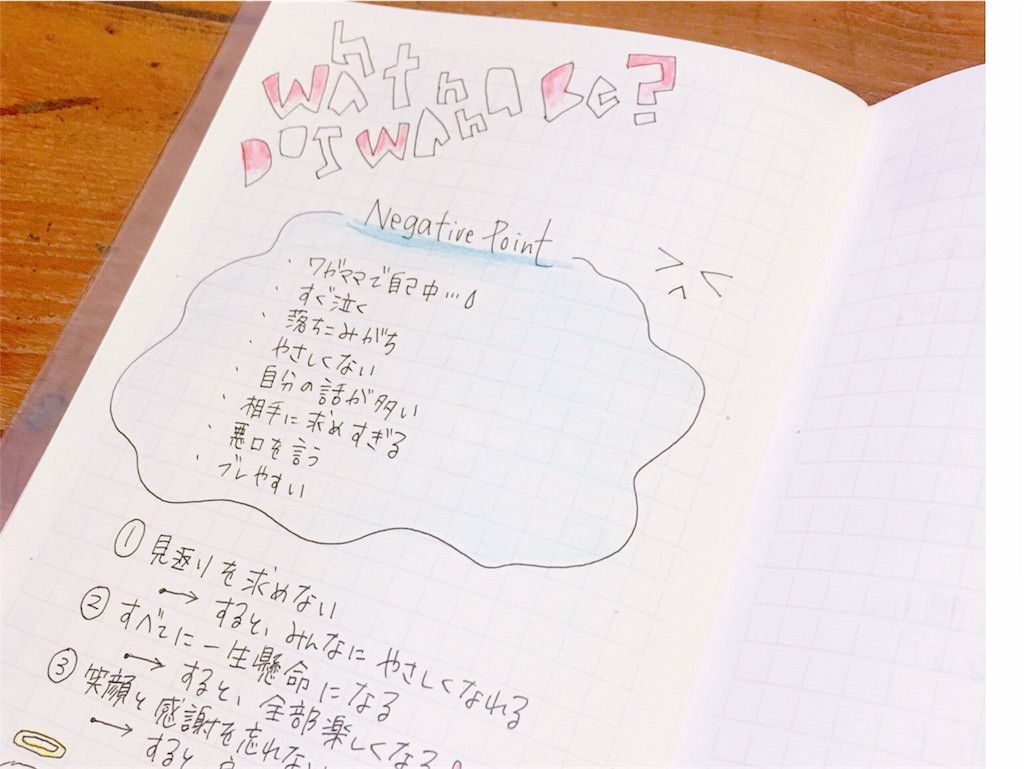 WhAt nA Be?
DO I WAn
Negative Point
・ワガママで自己中…
・すぐ泣く
・落ちこみがち
・やさしくない
・自分の話が多い
・相手に求めすぎる
・悪口を言う
・ブレやすい
① 見返りを求めない
→ すると、みんなにやさしくなれる
② すべてに一生懸命になる
→ すると、全部楽しくなる
③ 笑顔と感謝を忘れない
→ すると